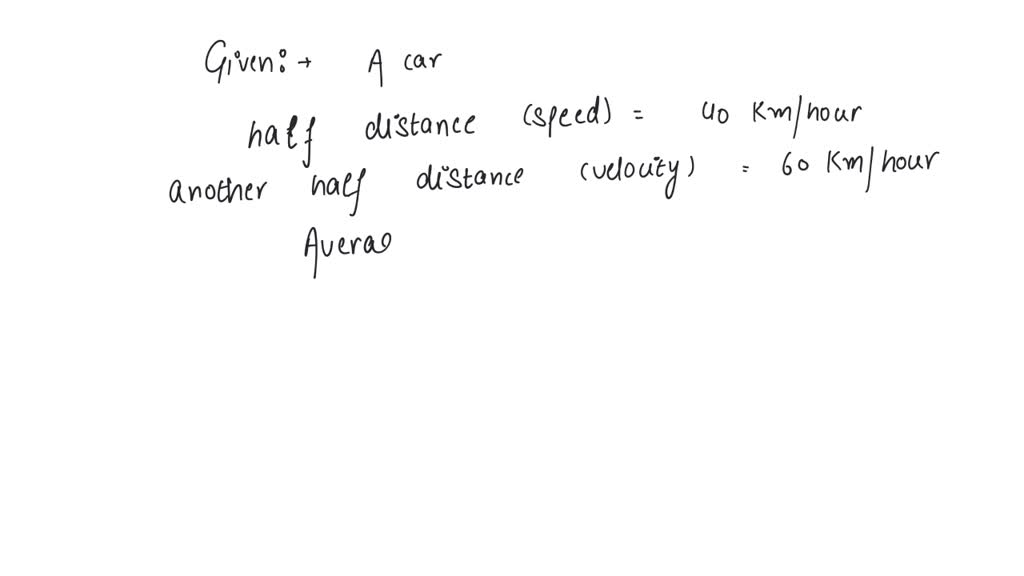 Given:→ A car
half distance (speed) = 40 Km/hour
another half distance (velocity) = 60 Km/hour
Averag